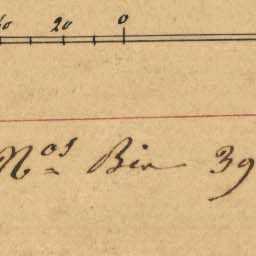 20 0
Nos Bis 39